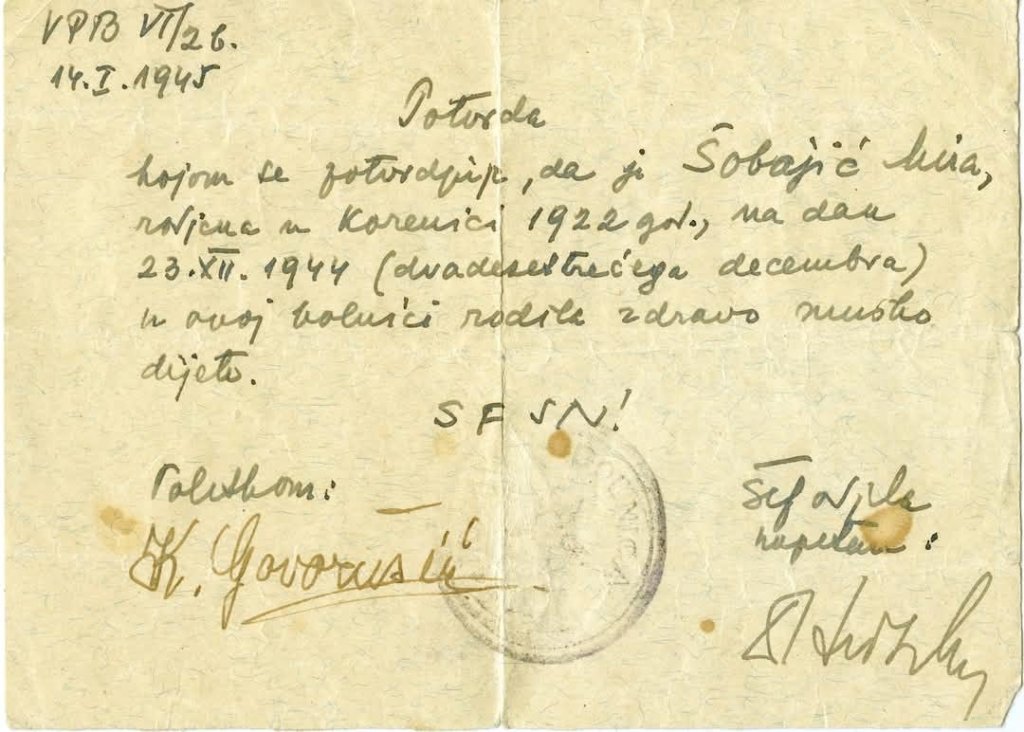 VPB VI/2b.
14.I.1945
Potvrda
kojom se potvrdjuje, da je Šobajić Mira,
rodjena u Korenici 1922 god., na dan
23.XII.1944 (dvadesettrećega decembra)
u ovoj bolnici rodila zdravo muško
dijete.
SFSN!
Politkom:
K. Govorušić
BOLNICA
Šef odjela
kapetan: